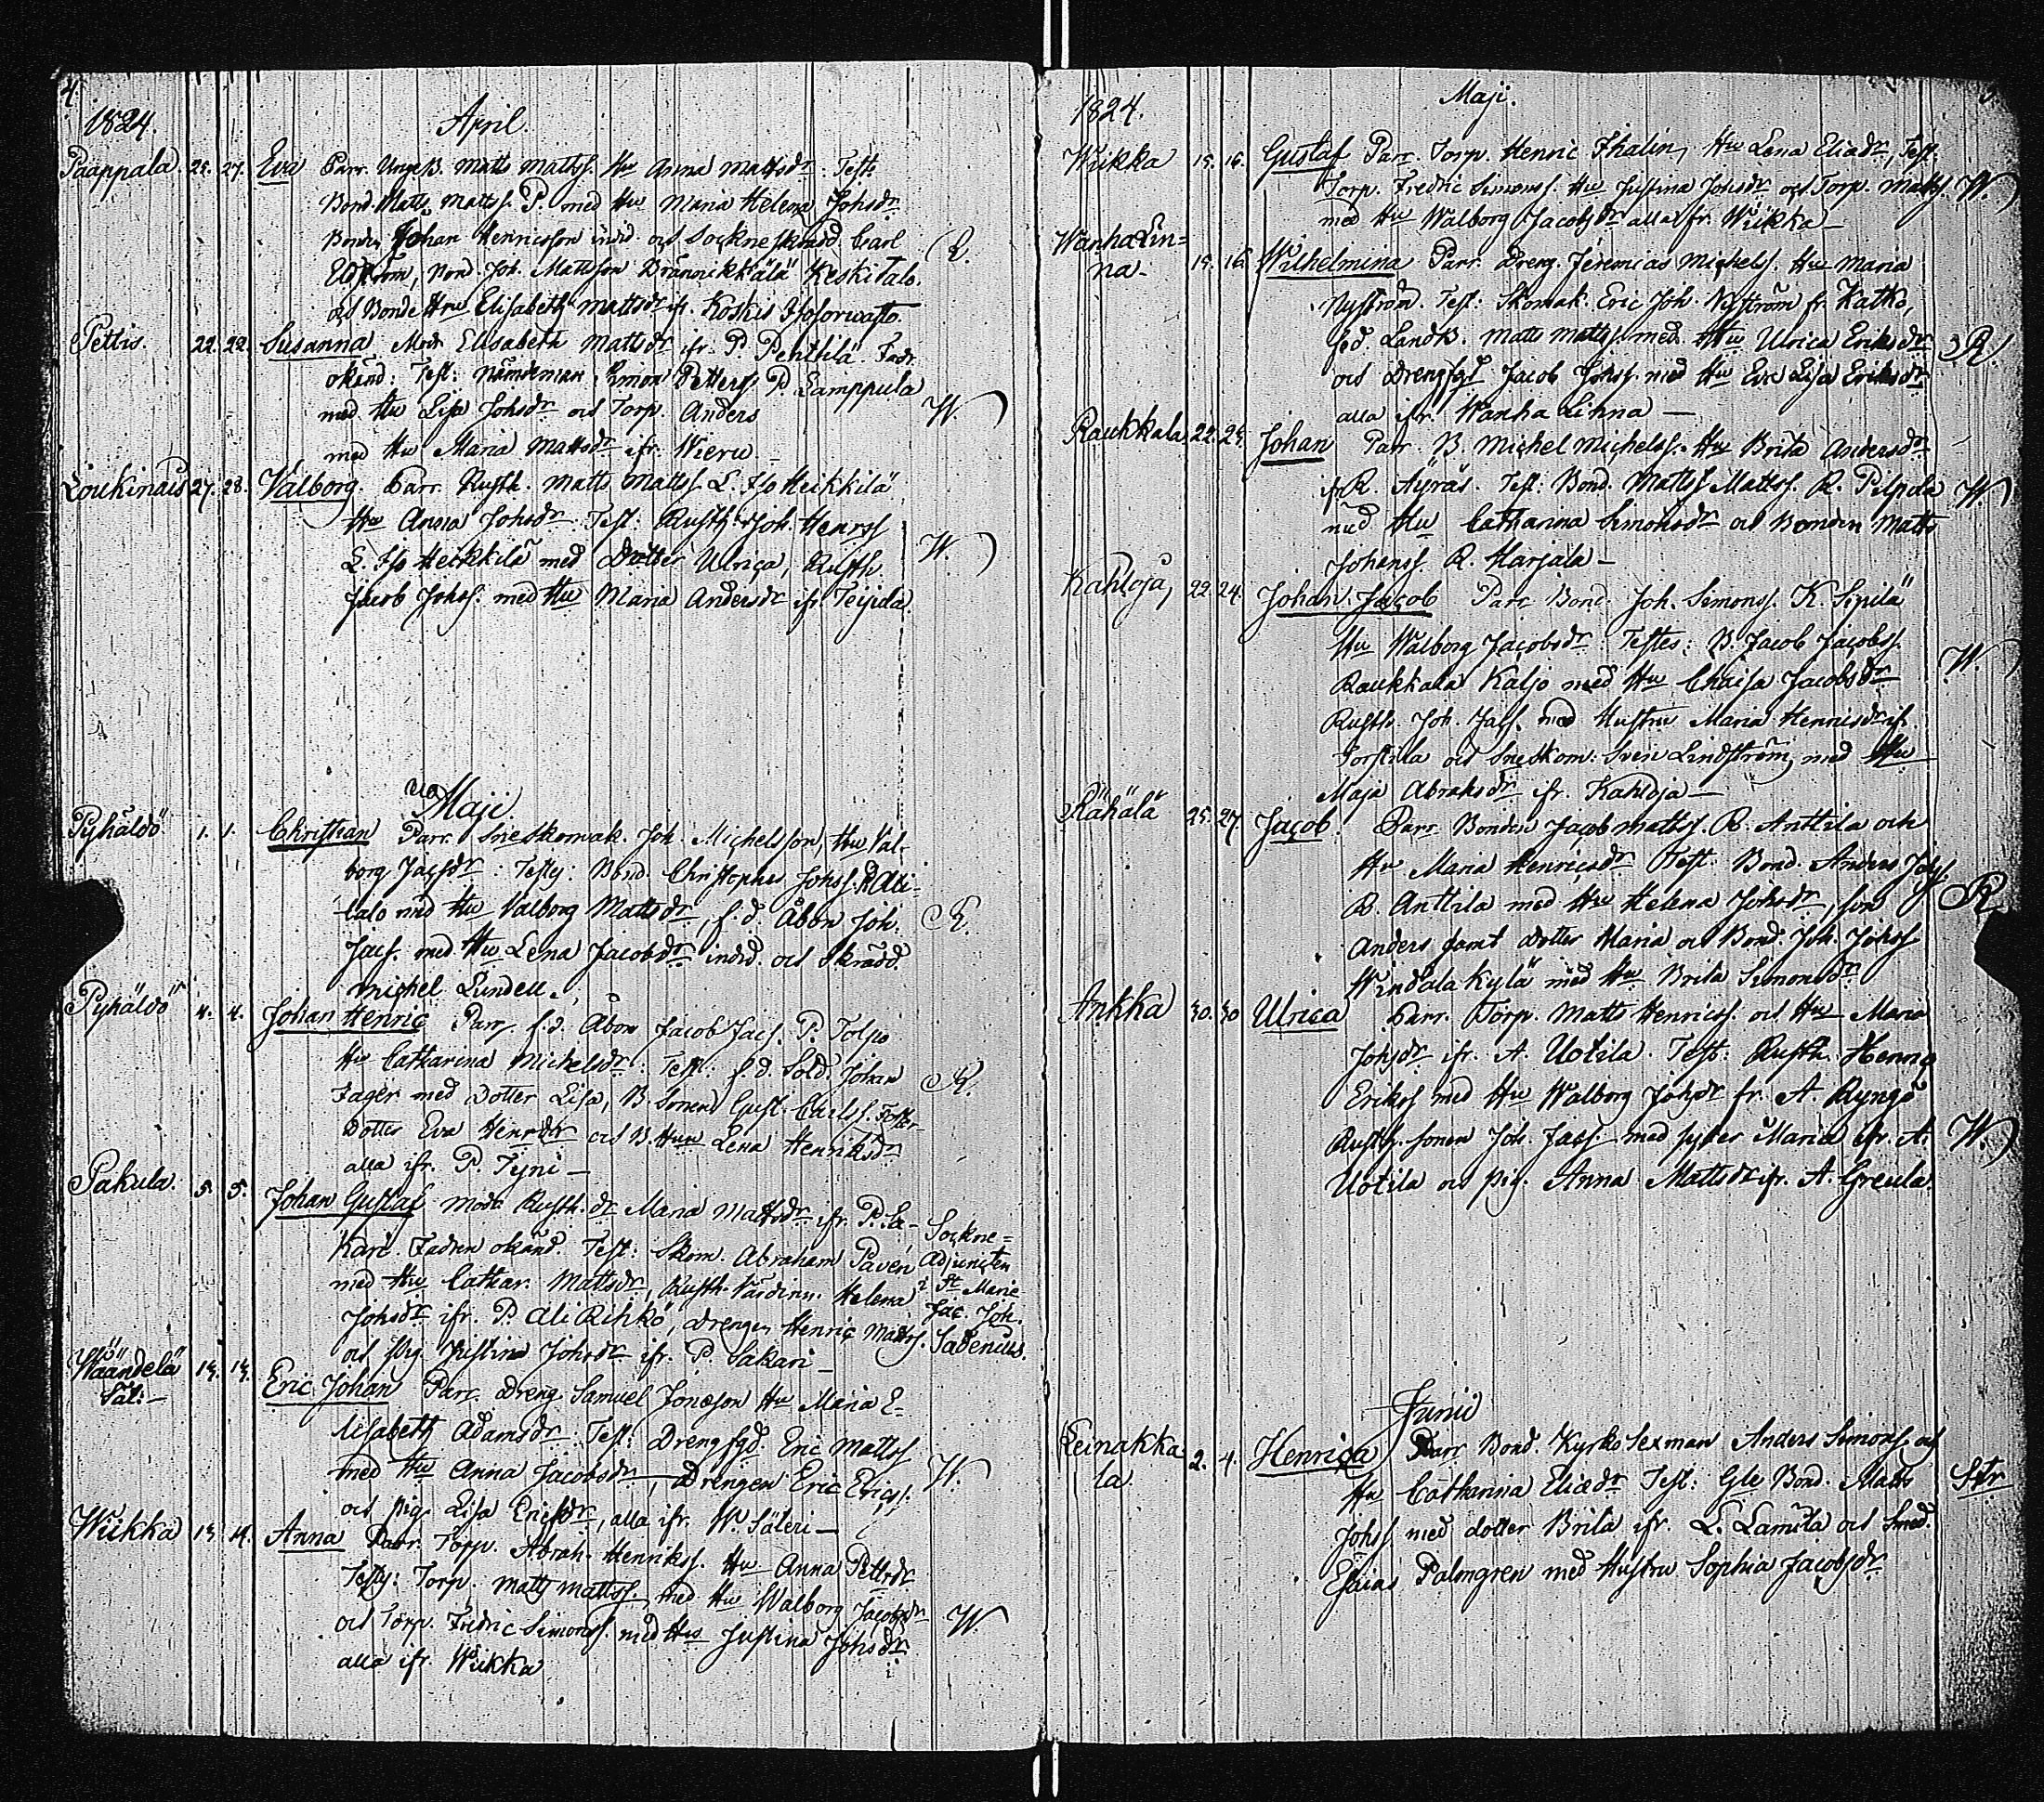 4
1824. April.
Paappala. 25. 27. Eva Parr. Unge B. Matts Matts. Hu Anna Mattsdr. Test:
Bond. Matts Matts. P. med Hu Maria Helena Johsdr
Bonden Johan Henricsson indd. och Socknes Carl
Edström, Bond. Joh. Mattsson Drännikkälä Keskitalo. R.
och Bonde Hru Elisabeth Mattsdr ifr. Koskis
Pettis. 22. 22. Susanna Modr. Elisabeth Mattsdr ifr. P. Penttilä. Fadr.
okänd: Test: Nämdeman Simon Petters. P. Lamppula
med Hu Lisa Johsdr och Torp. Anders W.
med Hu Maria Mattsdr ifr. Wieru
Loukinais 27. 28. Valborg. Parr. Rusth. Matts Matts. L. Iso Heikkilä
Hu Anna Johsdr Test: Rusth. Joh. Henrss
L. Iso Heikkilä med Dotter Ulrica, Rusth. W.
Jacob Johss. med Hu Maria Andersdr ifr. Teijula.
Maji.
Pyhäldö 1. 1. Christian Parr. Sneskomak. Joh. Michelsson, Hu Val-
borg Jacsdr: Testes: Bond. Christopher Johss. Ali-
talo med Hu Valborg Mattsdr, f.d. Åbon Joh. R.
Jacs. med Hu Lena Jacobsdr indd. och Skrädd.
Michel Lundell.
Pyhäldö 4. 4. Johan Henric Parr. f.d. Åbon Jacob Jacs. P. Tolpo
Hu Catharina Michelsdr: Test: f.d. Sold. Johan
Jager med Dotter Lisa, B. Sonen Gust. Carlss. Foster- R.
dotter Eva Henrdr och B. Hru Lena Henriksdr
alla ifr. P. Tyni
Pakula. 5. 5. Johan Gustaf Modr. Rusth. dr Maria Mattsdr ifr. P. Sa- Sockne=
kari. Fadren okänd. Test: Skom. Abraham Paven Adjuncten
med Hu Cathar. Mattsdr, Rusth. Värdinn. Helena i St. Marie
Johsdr ifr. P. Ali Rihko, Drengen Henric Matts. Jac. Joh.
och Pig. Justina Johsdr ifr. P. Sakari Sadenius.
Wäändelä 13. 13. Eric Johan Parr. Dreng Samuel Jonasson Hu Maria E-
Säl: lisabeth Adamsdr. Test: Drengfgd. Eric Matts
med Hu Anna Jacobsdr, Drengen Eric Ericss. W.
och Pig. Lisa Ericsdr, alla ifr. W. Säteri
Wiikka 13. 14. Anna Parr. Torp. Abrah. Henrikss. Hu Anna Pettrdr
Testes: Torp. Matts Mattss med Hu Walborg Jacobsdr
och Torp. Fredric Simonss. med Hu Justina Johsdr W.
alla ifr. Wiikka
1824. Maji.
Wiikka 15. 16. Gustaf Parr. Torp. Henric Thalin, Hu Lena Eliædr, Test:
Torp. Fredric Simonss. Hu Justina Johsdr och Torp. Matts. W.
med Hu Walborg Jacobsdr alla fr. Wiikka
Wanha Lin=
na. 15. 16. Wilhelmina Parr. Dreng. Jeremias Michelss. Hu Maria
Nyström. Test: Skomak. Eric Joh. Nyström fr. Katko,
f.d. Landb. Matts Matts. med Hu Ulrica Eriksdr R.
och Drengfgd Jacob Johss. med Hu Eva Lisa Eriksdr
alla ifr. Wanha Linna
Raukkala 22. 24. Johan Parr. B. Michel Michelss. Hu Brita Andersdr
ifr. R. Äyräs. Test: Bond. Matts Mattss. R. Pilpola W.
med Hu Catharina Simonsdr och Bonden Matts
Johanss R. Marjala
Kahloja, 22. 24. Johan Jacob Parr. Bond. Joh. Simonss. K. Sipilä
Hu Walborg Jacobsdr Testes: B. Jacob Jacobss.
Raukkala Kaljo med Hu Chaisa Jacobsdr W.
Rusth. Joh. Jacs. med Hustru Maria Henricsdr ifr.
Torstila och Sneskom: Sven Lindström, med Hu
Maja Abrahsdr ifr. Kahloja
Rähälä 25. 27. Jacob. Parr. Bonden Jacob Mattss. R. Anttila och
Hu Maria Henricsdr Test: Bond. Anders Johss.
R. Anttila med Hu Helena Johsdr, son R
Anders samt dotter Maria och Bond. Joh. Johss
Windala kylä med Hu. Brita Simonsdr
Ankka 30. 30 Ulrica Parr. Torp. Matts Henricss. och Hu Maria
Johsdr ifr. A. Uotila. Test: Rusth. Henric
Erikss med Hu Walborg Johsdr fr. A. Ryngö
Rusth. sonen Joh. Jacs. med syster Maria ifr. A. W.
Uotila och pig. Anna Mattsdr ifr. A. Greula.
Junii
Leinakka-
la. 2. 4. Henrica Parr. Bond. Kyrko Sexman Anders Simonss. och
Hu Catharina Eliædr Test: Gle Bond. Matts Str
Johss med dotter Brita ifr. L. Lamila och Smed.
Esaias Palmgren med Hustru Sophia Jacobsdr